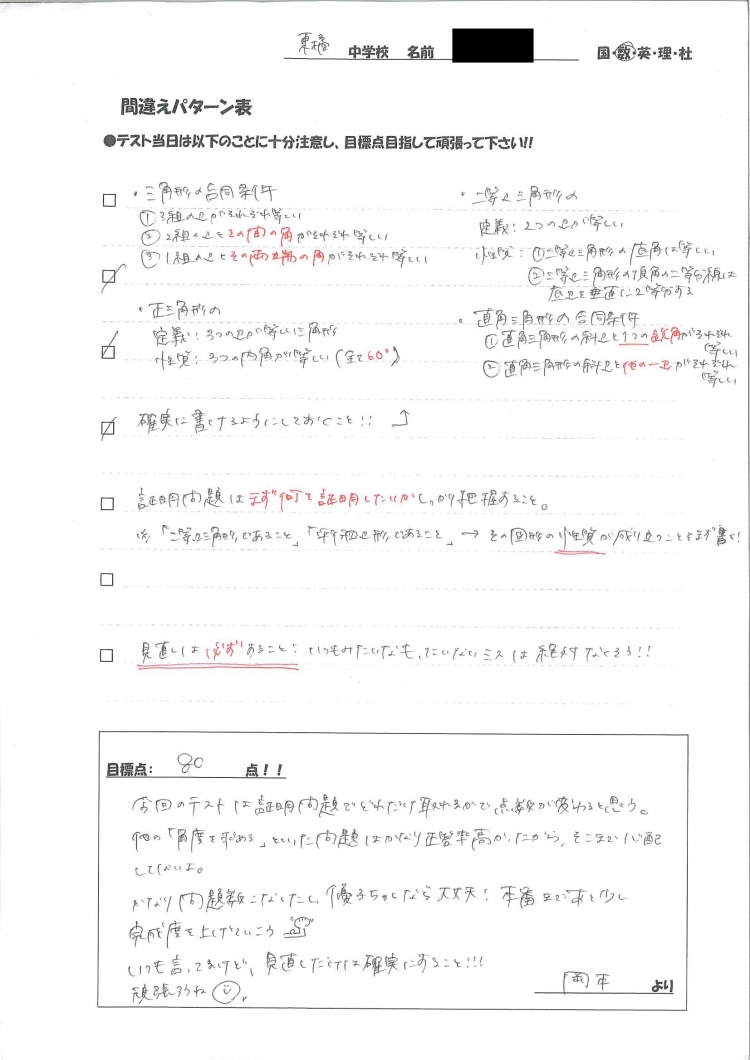 東橘 中学校 名前 国・数・英・理・社
間違えパターン表
●テスト当日は以下のことに十分注意し、目標点目指して頑張って下さい!!
・三角形の合同条件
①3組の辺がそれぞれ等しい
②2組の辺とその間の角がそれぞれ等しい
③1組の辺とその両端の角がそれぞれ等しい
・正三角形の
定義:3つの辺が等しい三角形
性質:3つの内角が等しい(全て60°)
・二等辺三角形の
定義:2つの辺が等しい
性質:①二等辺三角形の底角は等しい
②二等辺三角形の頂角の二等分線は
底辺を垂直に2等分する
・直角三角形の合同条件
①直角三角形の斜辺と1つの鋭角がそれぞれ
等しい
②直角三角形の斜辺と他の一辺がそれぞれ
等しい
確実に書けるようにしておくこと!!
証明問題はまず何を証明したいかしっかり把握すること。
「二等辺三角形であること」「平行四辺形であること」→その図形の性質が成り立つことをまず書く!
見直しは必ずすること!いつもみたいなもったいないミスは絶対なくそう!!
目標点: 90 点!!
今回のテストは証明問題でどれだけ取れるかで点数が変わると思う。
他の「角度を求める」といった問題はかなり正答率高かったから、そこまで心配
してないよ。
かなり問題数こなしたし、優子ちゃんなら大丈夫!本番まであと少し
完成度を上げていこう
いつも言ってるけど、見直しだけは確実にすること!!!
頑張ろうね
岡本 より